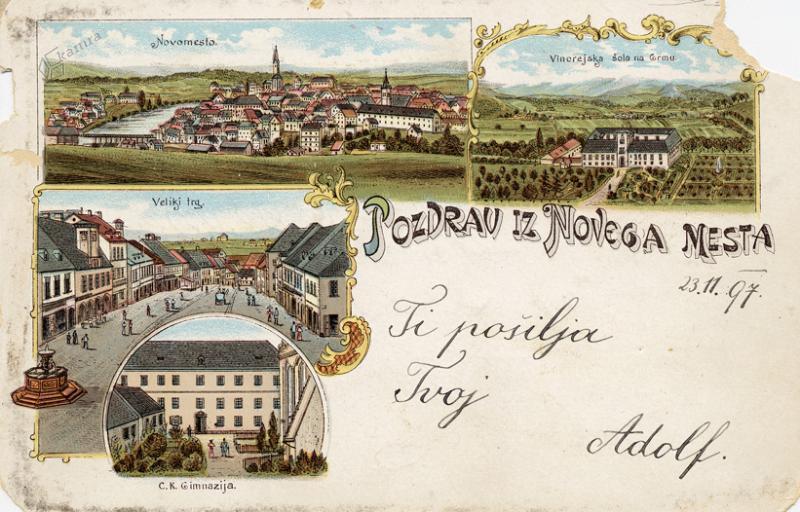 kamra
Novomesto.
Vinorejska šola na Grmu
Veliki trg.
POZDRAV IZ NOVEGA MESTA
23.11.97.
Ti pošilja
Tvoj
Adolf.
C. K. Gimnazija.